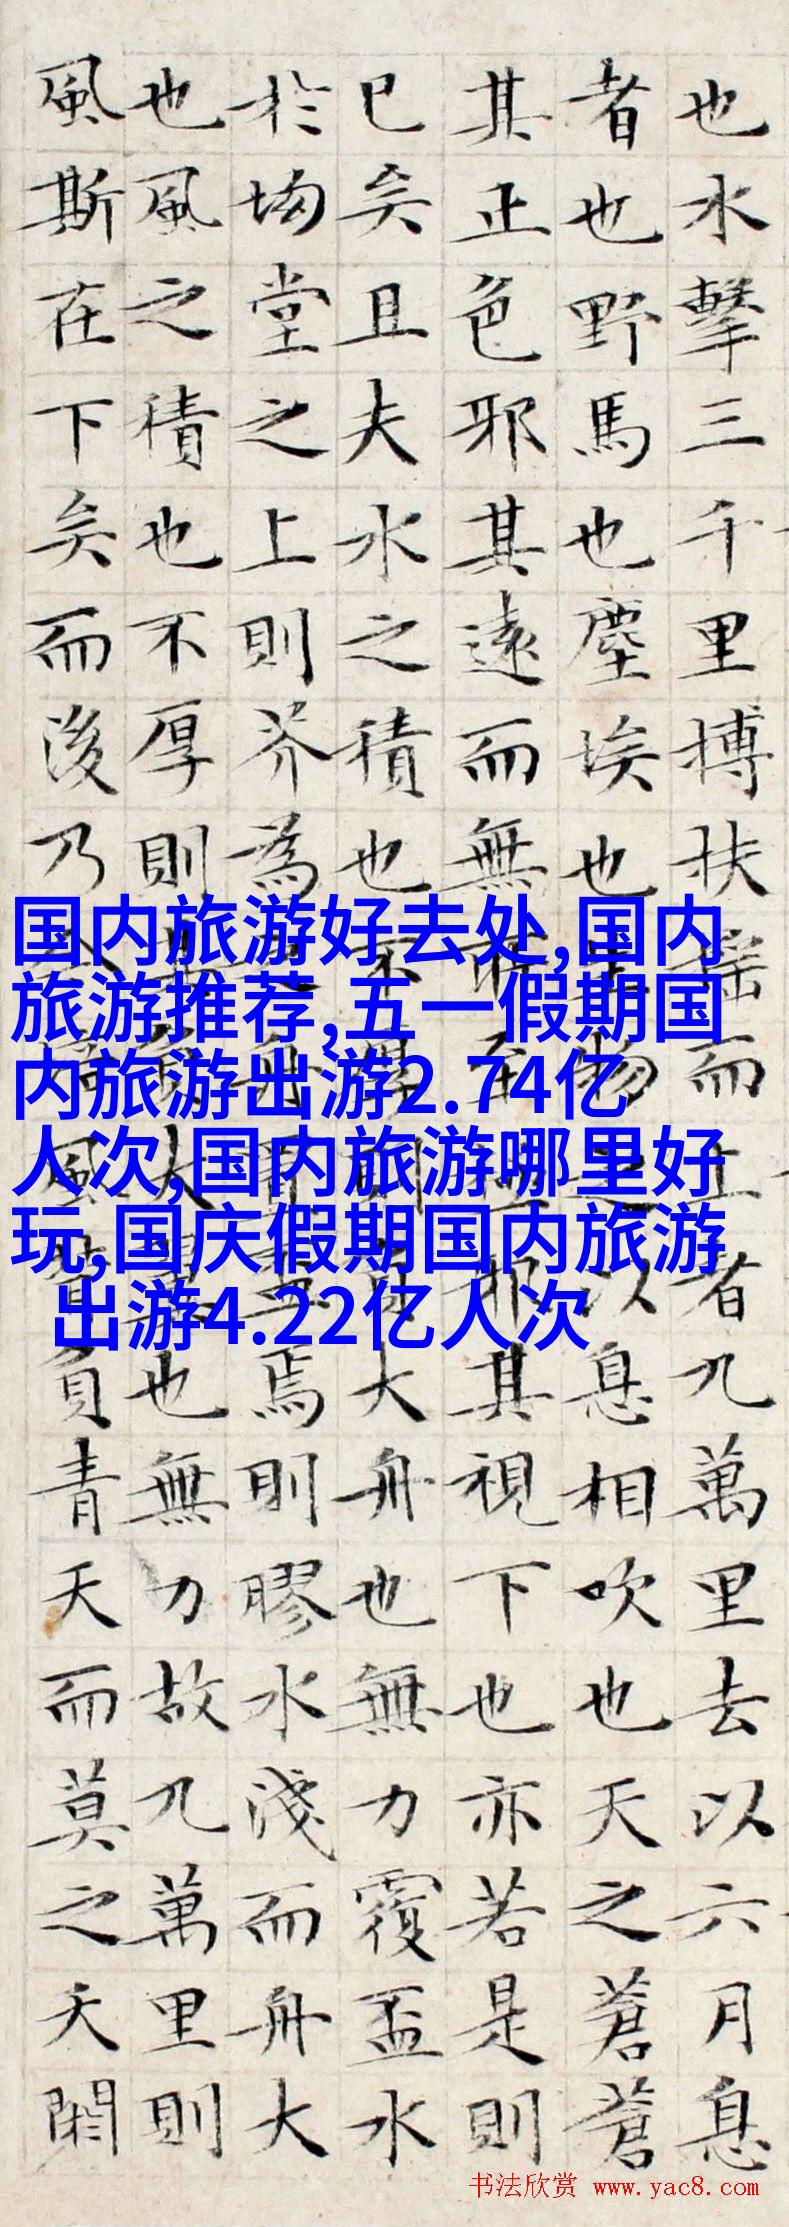 也水擊三千里搏扶搖而上者九萬里去以六月息
者也野馬也塵埃也生物之以息相吹也天之蒼蒼
其正色邪其遠而無所至極邪其視下也亦若是則
已矣且夫水之積也不厚則負大舟也無力覆盃水
於坳堂之上則芥為舟焉則膠水淺而舟大
也風之積也不厚則負大翼也無力故九萬里則
風斯在下矣而後乃風背負青天而莫之夭閼
国内旅游好去处,国内
旅游推荐,五一假期国
内旅游出游2.74亿
人次,国内旅游哪里好
玩,国庆假期国内旅游
出游4.22亿人次
书法欣赏 www.yac8.com